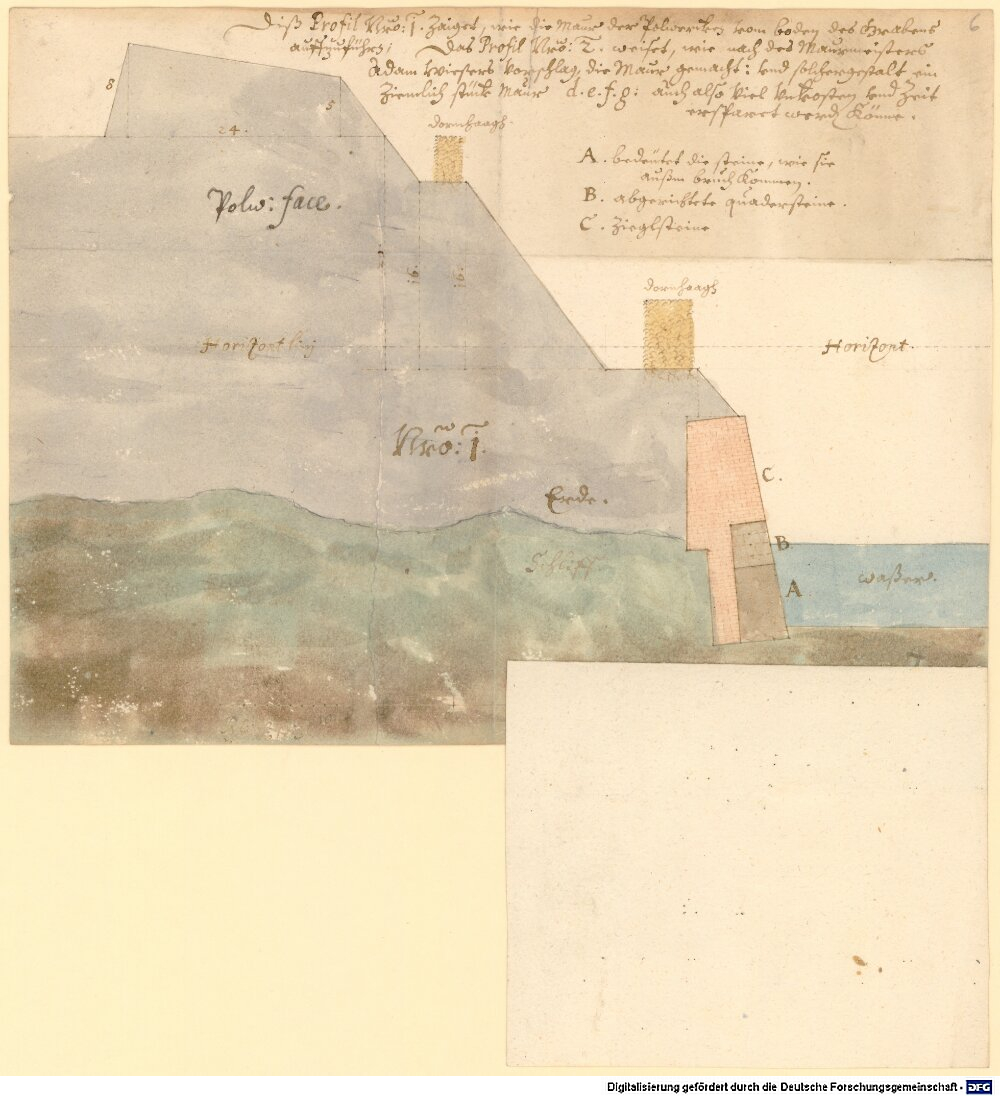 Diß Profil Nrõ: 1. Zaiget, wie die Maur der Polwercken vom boden des Grabens
auffzuführen; Das Profil Nrõ: 2. weiset, wie nach des Maurmeisters
Adam Wiesers Vorschlag, die Maur gemacht: vnd solchergestalt ein
Ziemlich stück Maur d.e.f.g: auch also viel Vnkosten vnd Zeit
ersparet werden Könne.
6
8
5
24.
dornhaagh.
A. bedeütet die steine, wie sie
außm bruch Kommen.
B. abgerichtete quadersteine.
C. Zieglsteine
Polw: face.
16.
16.
dornhaagh
Horizont linj
Horizont.
Nrõ: 1.
C.
Erde.
B
Schlipff
waßer.
A
Digitalisierung gefördert durch die Deutsche Forschungsgemeinschaft - DFG